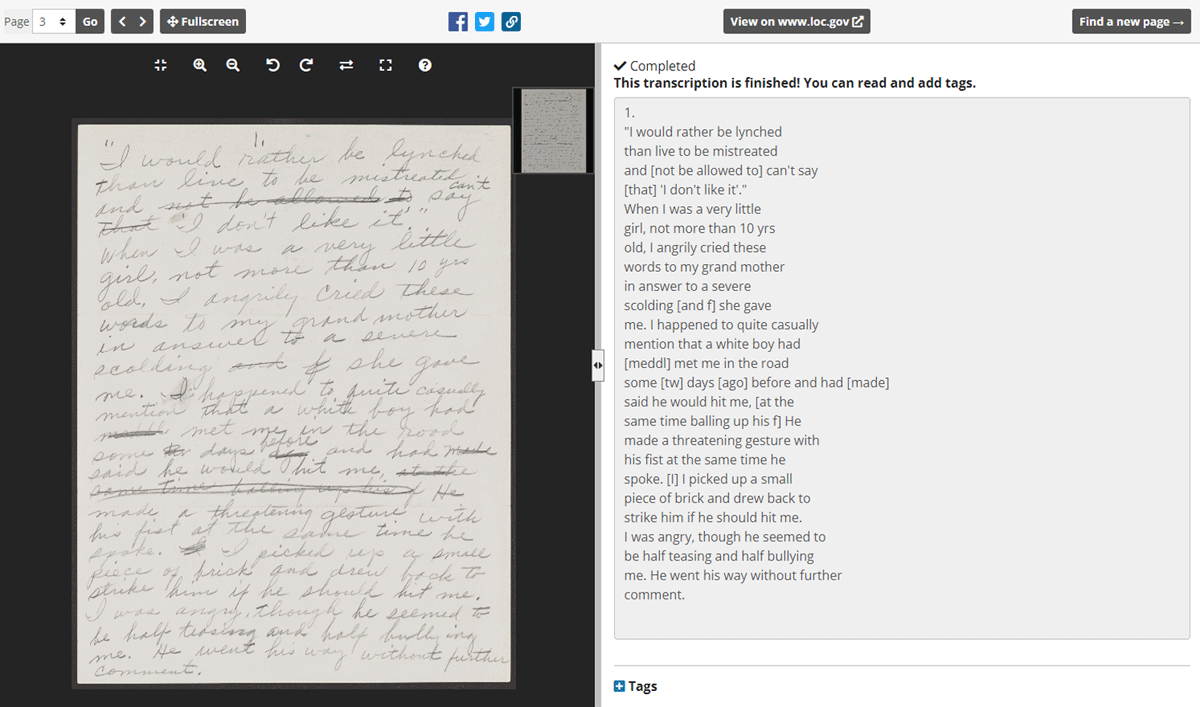 Page 3 Go Fullscreen View on www.loc.gov Find a new page →
"I would rather be lynched
than live to be mistreated
and not be allowed to can't say
that 'I don't like it'."
When I was a very little
girl, not more than 10 yrs
old, I angrily cried these
words to my grand mother
in answer to a severe
scolding and f she gave
me. I happened to quite casually
mention that a white boy had
meddl met me in the road
some tw days ago before and had made
said he would hit me, at the
same time balling up his f He
made a threatening gesture with
his fist at the same time he
spoke. I I picked up a small
piece of brick and drew back to
strike him if he should hit me.
I was angry, though he seemed to
be half teasing and half bullying
me. He went his way without further
comment.
Completed
This transcription is finished! You can read and add tags.
1.
"I would rather be lynched
than live to be mistreated
and [not be allowed to] can't say
[that] 'I don't like it'."
When I was a very little
girl, not more than 10 yrs
old, I angrily cried these
words to my grand mother
in answer to a severe
scolding [and f] she gave
me. I happened to quite casually
mention that a white boy had
[meddl] met me in the road
some [tw] days [ago] before and had [made]
said he would hit me, [at the
same time balling up his f] He
made a threatening gesture with
his fist at the same time he
spoke. [I] I picked up a small
piece of brick and drew back to
strike him if he should hit me.
I was angry, though he seemed to
be half teasing and half bullying
me. He went his way without further
comment.
Tags